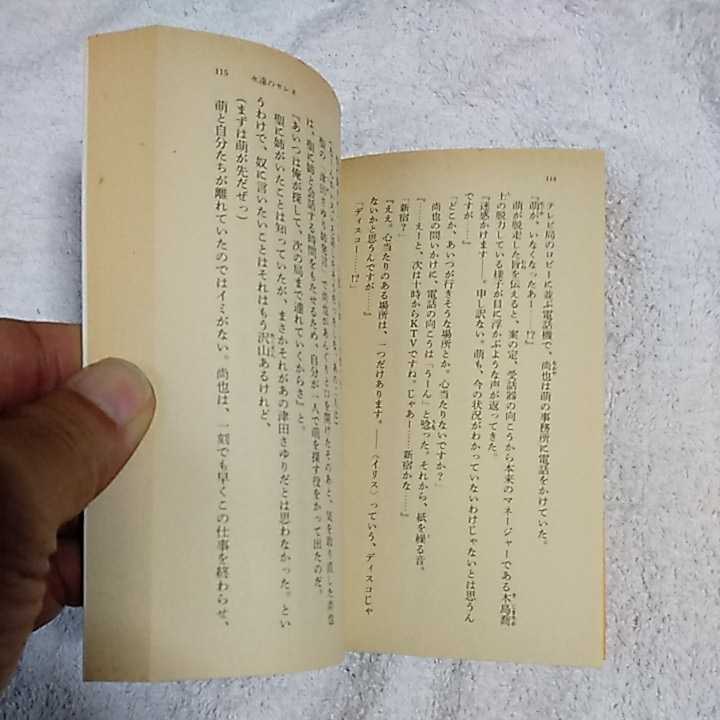 114
テレビ局のロビーに並ぶ電話機で、尚也は萌の事務所に電話をかけていた。
『萌が、いなくなったあー……!?』
萌が脱走した旨を伝えると、案の定、受話器の向こうから本来のマネージャーである木島喬
士の脱力している様子が目に浮かぶような声が返ってきた。
『迷惑かけます——。申し訳ない。萌も、今の状況がわかっていないわけじゃないとは思うん
ですが……』
「どこか、あいつが行きそうな場所とか。心当たりないですか?」
尚也の問いかけに、電話の向こうは「うーん」と唸った。それから、紙を繰る音。
『……えーと、次は十時からKTVですね。じゃあー……新宿かな……』
「新宿?」
『ええ。心当たりのある場所は、一つだけあります。——〈イリス〉っていう、ディスコじゃ
ないかと思うんですが……』
「ディスコー……!?」
115
永遠の
は、聖に姉と会話する時間をもたせるため、自分が一人で萌を探す役をかって出たのだ。
『あいつは俺が探して、次の局まで連れていくからさ』と。
聖に姉がいたことは知っていたが、まさかそれがあの津田さゆりだとは思わなかった。とい
うわけで、奴に言いたいことはそれはもう沢山あるけれど、
(まずは萌が先だぜっ)
萌と自分たちが離れていたのではイミがない。尚也は、一刻でも早くこの仕事を終わらせ、